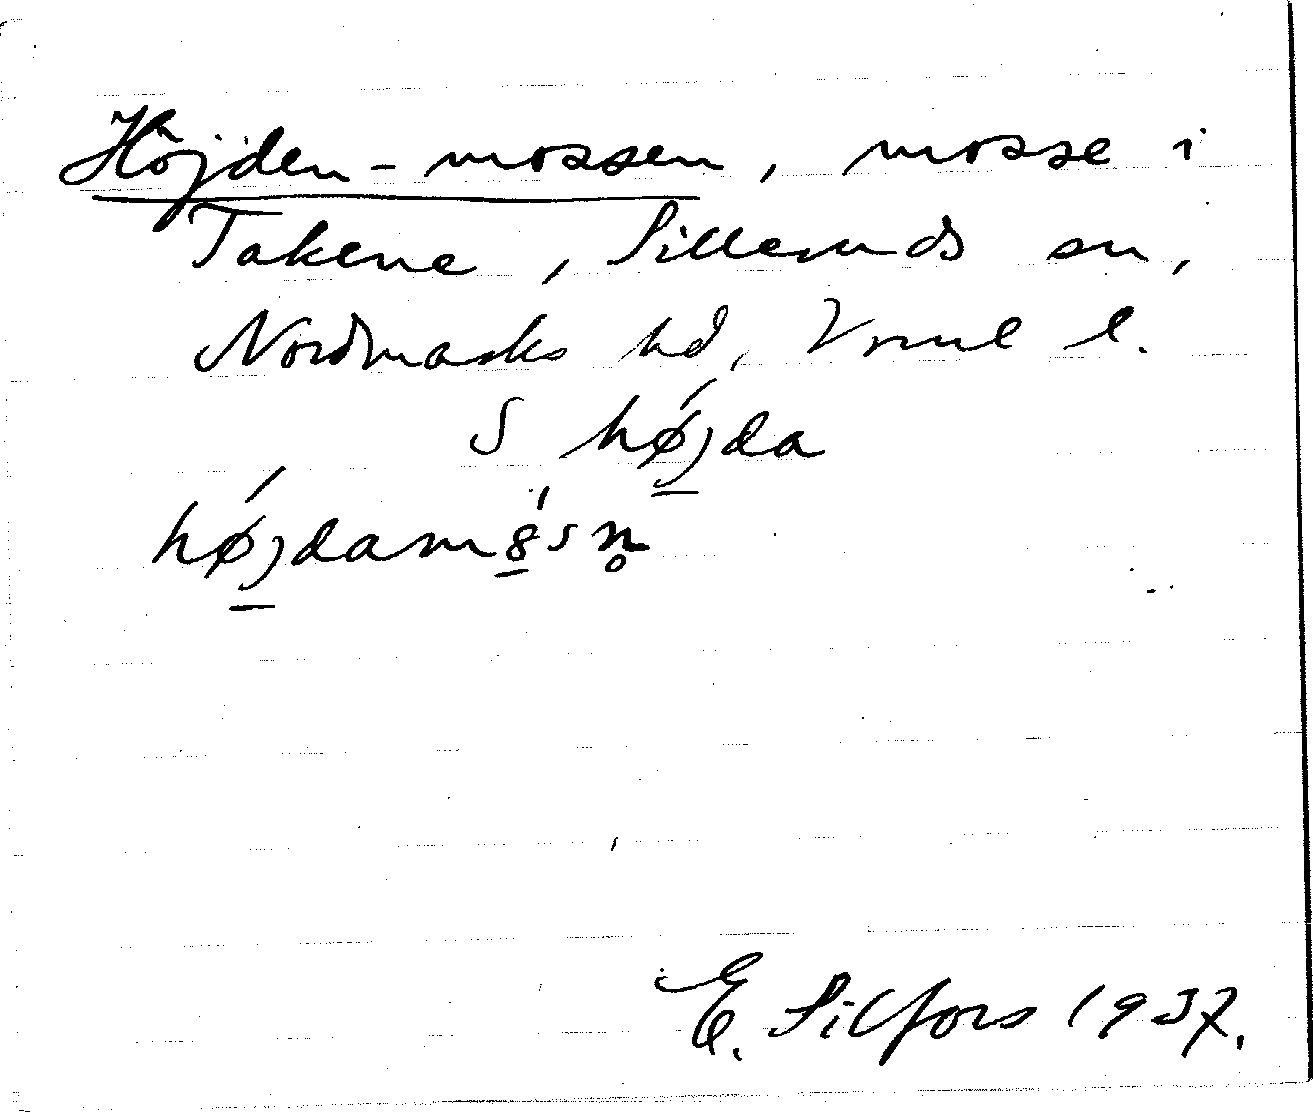 Höjden-mossen, mosse i
Takene, Silleruds sn,
Nordmarks hd, Vrml l.
S højda
højdam8sn̥
E. Silfors 1937.